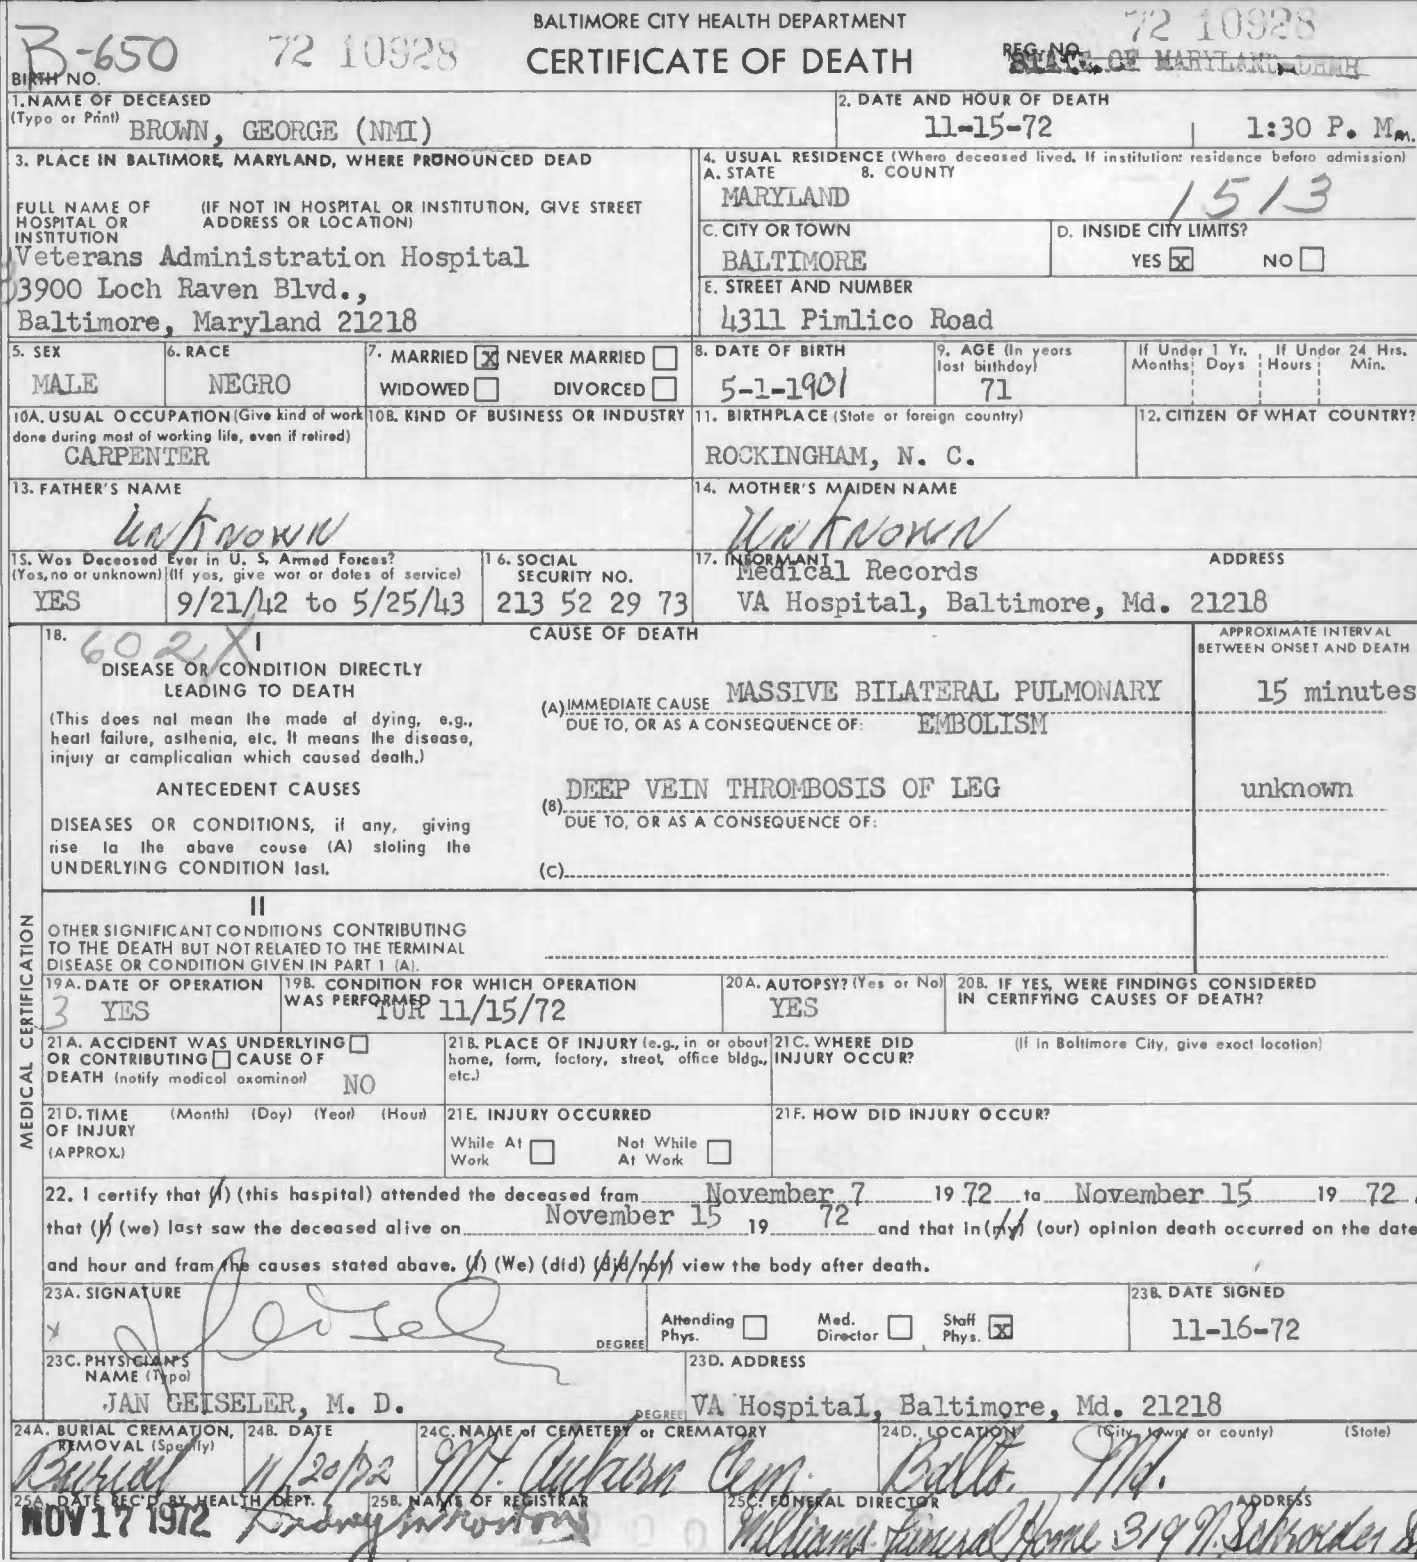 BALTIMORE CITY HEALTH DEPARTMENT
CERTIFICATE OF DEATH
B-650 72 10928 72 10928
BIRTH NO. REG. NO. STATE OF MARYLAND-DHMH
1. NAME OF DECEASED (Type or Print) BROWN, GEORGE (NMI)
2. DATE AND HOUR OF DEATH 11-15-72 1:30 P. M.
3. PLACE IN BALTIMORE, MARYLAND, WHERE PRONOUNCED DEAD
FULL NAME OF HOSPITAL OR INSTITUTION (IF NOT IN HOSPITAL OR INSTITUTION, GIVE STREET ADDRESS OR LOCATION)
Veterans Administration Hospital
3900 Loch Raven Blvd.,
Baltimore, Maryland 21218
4. USUAL RESIDENCE (Where deceased lived. If institution: residence before admission)
A. STATE B. COUNTY
MARYLAND 1513
C. CITY OR TOWN D. INSIDE CITY LIMITS?
BALTIMORE YES x NO
E. STREET AND NUMBER
4311 Pimlico Road
5. SEX MALE
6. RACE NEGRO
7. MARRIED X NEVER MARRIED
WIDOWED DIVORCED
8. DATE OF BIRTH 5-1-1901
9. AGE (In years last birthday) 71
If Under 1 Yr. Months Days If Under 24 Hrs. Hours Min.
10A. USUAL OCCUPATION (Give kind of work done during most of working life, even if retired) CARPENTER
10B. KIND OF BUSINESS OR INDUSTRY
11. BIRTHPLACE (State or foreign country) ROCKINGHAM, N. C.
12. CITIZEN OF WHAT COUNTRY?
13. FATHER'S NAME Unknown
14. MOTHER'S MAIDEN NAME Unknown
15. Was Deceased Ever in U. S. Armed Forces?
(Yes, no or unknown) (If yes, give war or dates of service)
YES 9/21/42 to 5/25/43
16. SOCIAL SECURITY NO. 213 52 29 73
17. INFORMANT ADDRESS
Medical Records
VA Hospital, Baltimore, Md. 21218
18. 602X CAUSE OF DEATH
APPROXIMATE INTERVAL BETWEEN ONSET AND DEATH
I
DISEASE OR CONDITION DIRECTLY LEADING TO DEATH
(This does not mean the mode of dying, e.g., heart failure, asthenia, etc. It means the disease, injury or complication which caused death.)
(A) IMMEDIATE CAUSE MASSIVE BILATERAL PULMONARY 15 minutes
DUE TO, OR AS A CONSEQUENCE OF: EMBOLISM
ANTECEDENT CAUSES
DISEASES OR CONDITIONS, if any, giving rise to the above cause (A) stating the UNDERLYING CONDITION last.
(B) DEEP VEIN THROMBOSIS OF LEG unknown
DUE TO, OR AS A CONSEQUENCE OF:
(C)
II
OTHER SIGNIFICANT CONDITIONS CONTRIBUTING TO THE DEATH BUT NOT RELATED TO THE TERMINAL DISEASE OR CONDITION GIVEN IN PART 1 (A).
MEDICAL CERTIFICATION
19A. DATE OF OPERATION 3 YES
19B. CONDITION FOR WHICH OPERATION WAS PERFORMED TUR 11/15/72
20A. AUTOPSY? (Yes or No) YES
20B. IF YES, WERE FINDINGS CONSIDERED IN CERTIFYING CAUSES OF DEATH?
21A. ACCIDENT WAS UNDERLYING OR CONTRIBUTING CAUSE OF DEATH (notify medical examiner) NO
21B. PLACE OF INJURY (e.g., in or about home, farm, factory, street, office bldg., etc.)
21C. WHERE DID INJURY OCCUR? (If in Baltimore City, give exact location)
21D. TIME OF INJURY (APPROX.) (Month) (Day) (Year) (Hour)
21E. INJURY OCCURRED
While At Work Not While At Work
21F. HOW DID INJURY OCCUR?
22. I certify that (I) (this hospital) attended the deceased from November 7 19 72 to November 15 19 72,
that (I) (we) last saw the deceased alive on November 15 19 72 and that in (my) (our) opinion death occurred on the date
and hour and from the causes stated above. (I) (We) (did) (did not) view the body after death.
23A. SIGNATURE X J Geiseler DEGREE
Attending Phys. Med. Director Staff Phys. X
23B. DATE SIGNED 11-16-72
23C. PHYSICIAN'S NAME (Type) JAN GEISELER, M. D. DEGREE
23D. ADDRESS VA Hospital, Baltimore, Md. 21218
24A. BURIAL CREMATION, REMOVAL (Specify) Burial
24B. DATE 11/20/72
24C. NAME of CEMETERY or CREMATORY Mt. Auburn Cem.
24D. LOCATION (City, town or county) (State) Balto. Md.
25A. DATE REC'D BY HEALTH DEPT. NOV 17 1972
25B. NAME OF REGISTRAR Sidney Norton
25C. FUNERAL DIRECTOR ADDRESS
Williams Funeral Home 319 N. Schroeder S